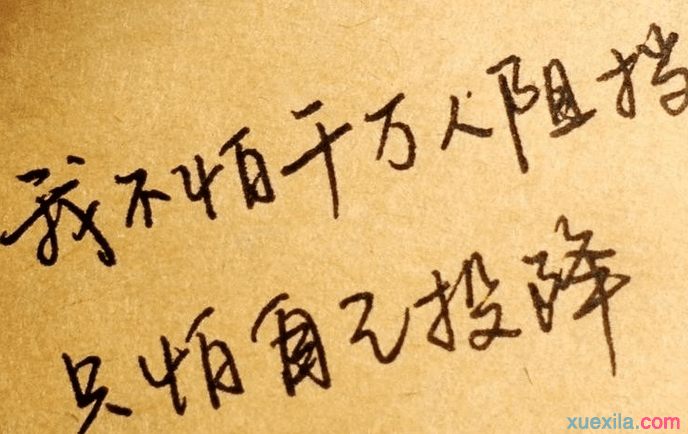 我不怕千万人阻挡
只怕自己投降
xuexila.com